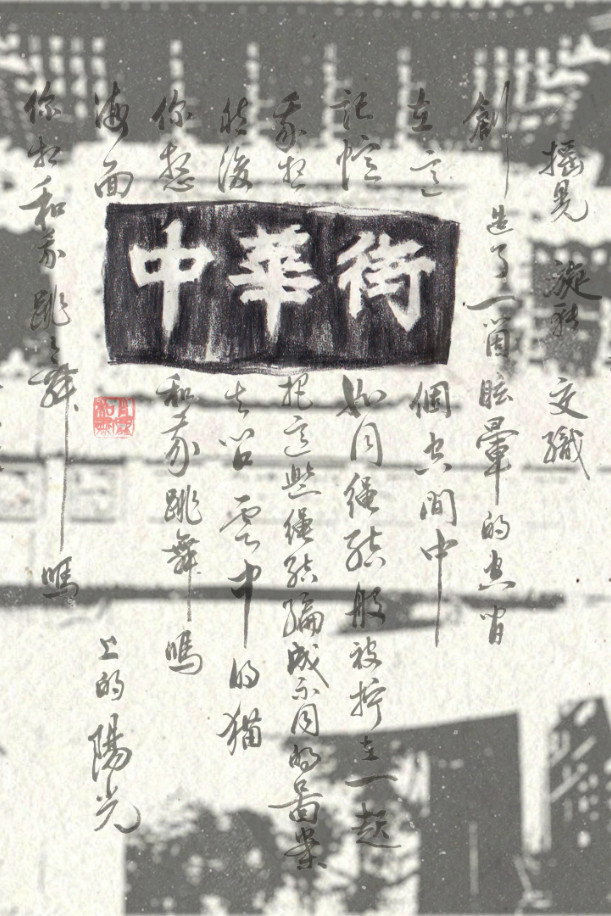 搖晃 旋转 交織
創造了一箇眩暈的
在這個空間中
記憶如同繩結般被拧在一起
我想把這些繩結編成不同的圖案
然後去雲中的猫
你想和我跳舞嗎
海面上的陽光
你想和我跳舞嗎
中華街